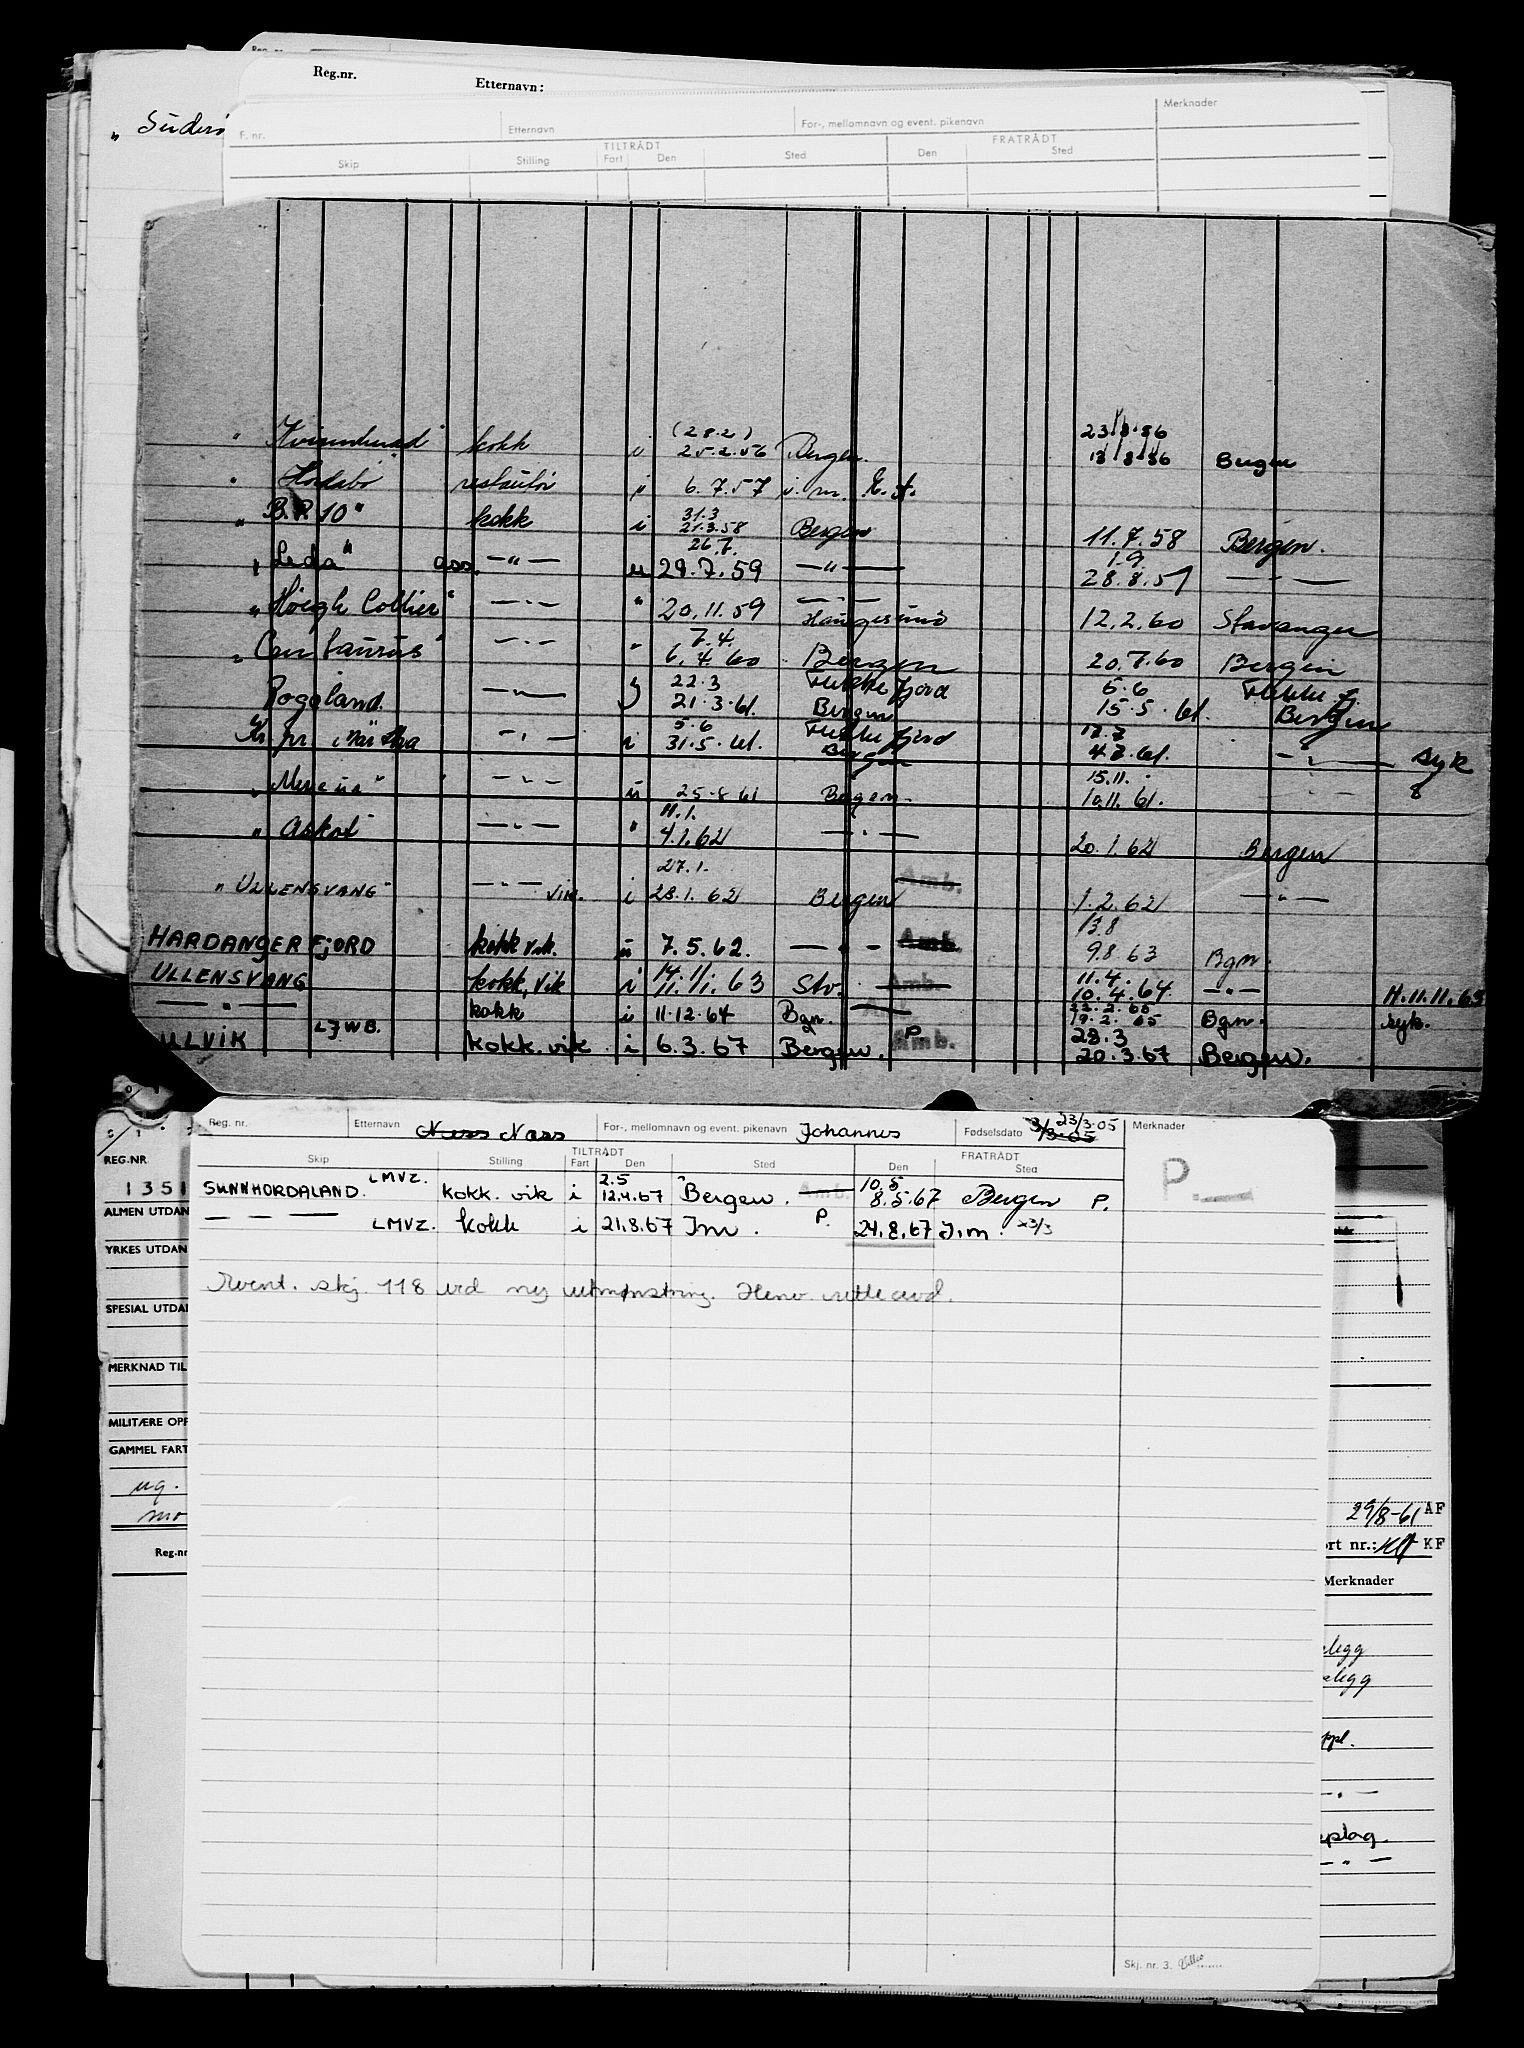 Reg.nr. Etternavn:
F. nr. Etternavn For-, mellomnavn og event. pikenavn Merknader
Skip Stilling TILTRÅDT Fart Den Sted FRATRÅDT Den Sted
(28.2) 23/8.56
" Kvinnherad" kokk i 25.2.56 Bergen. 13/8/56 Bergen
" Hordabø restautør " 6.7.57 i.m.
31.3
" B.P. 10" kokk i 21.3.58 Bergen 11.7.58 Bergen.
26.7. 1.9.
" Leda" ass. —"— u 29.7.59 —"— 28.8.59 —"—
" Høegh Collier" —"— " 20.11.59 Haugesund 12.2.60 Stavanger
7.4.
" Centaurus" —"— " 6.4.60 Bergen 20.7.60 Bergen
22.3 Flekkefjord 5.6 Flekkefj.
Rogaland. —"— 21.3.61. Bergen 15.5.61. Bergen
5.6 Flekkefjord
Kr pr Märtha —"— i 31.5.61. Bergen —"— syk
15.11.
" Meteor" —"— u 25.8.61 Bergen. 10.11.61. —"—
11.1.
" Askot" —"— " 4.1.62 —"— 20.1.62 Bergen
27.1.
" ULLENSVANG" —"— vik. i 28.1.62 Bergen Amb. 1.2.62 —"—
13.8
HARDANGERFJORD kokk vik. u 7.5.62. —"— Amb. 9.8.63 Bgn.
14.11. 11.4.
ULLENSVANG kokk, vik i 11.11.63 Stv. Amb. 10.4.64. —"— H.11.11.63
22.2.65
—"— kokk i 11.12.64 Bgn. 19.2.65 Bgn. syk.
LJWB. P. 28.3
ULLVIK kokk. vik i 6.3.67 Bergen. Amb. 20.3.67 Bergen.
REG.NR.
1351
ALMEN UTDAN
YRKES UTDAN
SPESIAL UTDA
MERKNAD TIL
MILITÆRE OPP
GAMMEL FART
ug.
mo
Reg.nr
Reg. nr. Etternavn Ness Næss For-, mellomnavn og event. pikenavn Johannes Fødselsdato 3/3-05 23/3-05 Merknader
Skip Stilling TILTRÅDT Fart Den Sted FRATRÅDT Den Sted
2.5 10.5 P.
SUNNHORDALAND. LMVZ. kokk. vik i 12.4.67 Bergen. Amb. 8.5.67 Bergen P.
— " — LMVZ. kokk i 21.8.67 Im. P. 24.8.67 J.m. x3/3
Avent. skj. 118 ved ny utmønstring. Henv. rulleavd.
Skj. nr. 3.
29/8-61 AF
ort nr.: KF
Merknader
elegg
elegg
ppl.
—"—
—"—